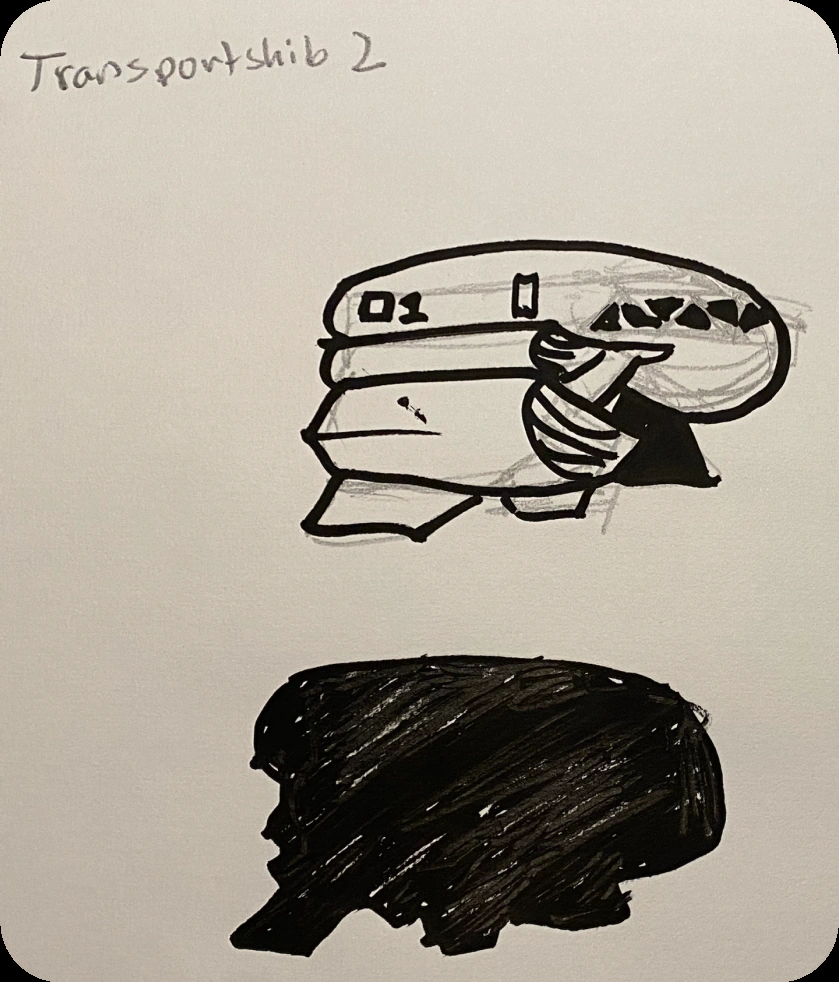 Transportshib 2
01